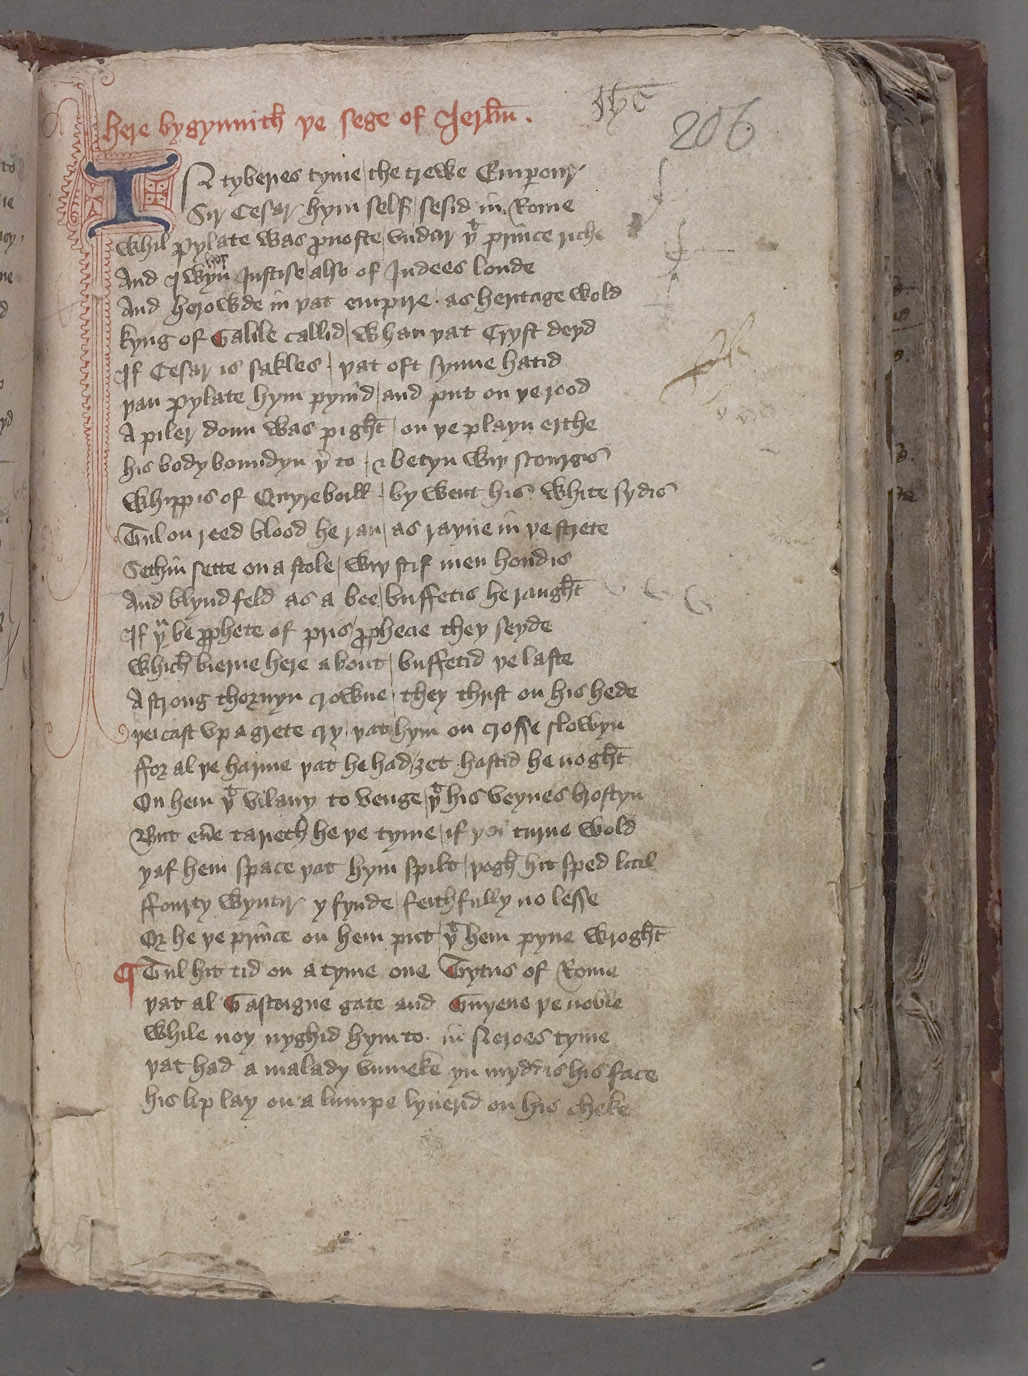 ihc
206
here bygynnith þe sege of Ierlm̄ .
IN tyberies tyme / the trewe Emperour
Sir Cesar hym self / sesid in Rome
whil pylate was prouoste / vndir þt prince riche
And Iwyn Iustise / also of Iudees londe
And herowde in þat empire . as heritage wold
kyng of Galile callid / whan þat Cryst deyd
If Cesar is sakles / þat oft synne hatid
þan pylate hym pyn̄d / and put on þe rood
A piler doun was pight / on þe playn erthe
his body boundyn þto / & betyn wiþ scourgis
whippis of Quyreboill / by went his white sydis
Til on reed blood he ran / as rayne in þe strete
Sethin sette on a stole / wiþ stif men hondis
And blyndfeld as a bee / buffetis he raught
If þu be prophete of pris / prophecie they seyde
which bierne here about / buffetid þe laste
A strong thornyn crowne / they thrist on his hede
þei cast vp a grete cry / þat hym on crosse slowyn
ffor al þe harme þat he had / ȝet hastid he noght
On hem þt vilany to venge / þt his veynes brostyn
But eu̅e tarieth he þe tyme / if þei turne wold
ȝaf hem space þat hym spilt / þogh hit sped litil
ffourty wyntir y fynde / feithfully no lesse
Or he þe prince on hem put / þt hem pyne wroght
¶ Til hit tid on a tyme one Tytus of Rome
þat al Gascoigne gate and Guyene þe noble
while noy nyghid hym to . in Neroes tyme
þat had a malady vnmeke yn myddis his face
his lip lay on a lumpe lyuerid on his cheke